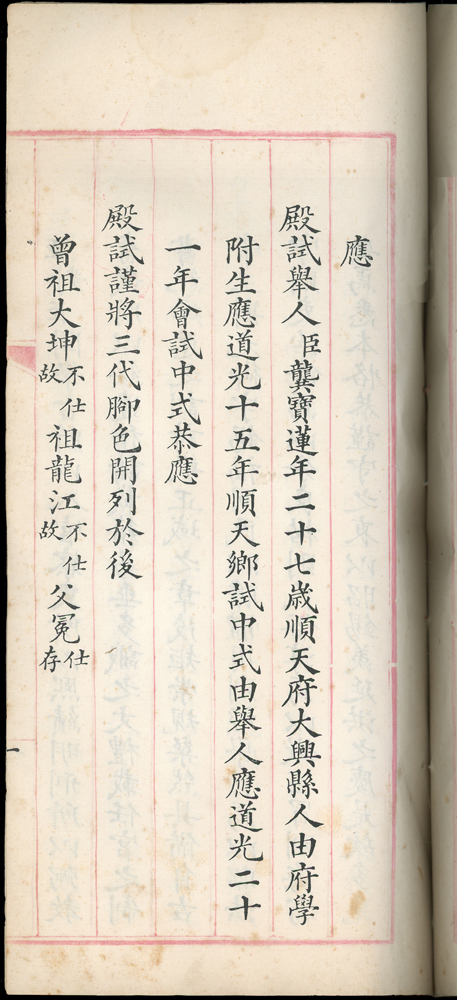 應
殿試舉人臣龔寶蓮年二十七歲順天府大興縣人由府學
附生應道光十五年順天鄉試中式由舉人應道光二十
一年會試中式恭應
殿試謹將三代腳色開列於後
曾祖大坤不仕故祖龍江不仕故父冕仕存